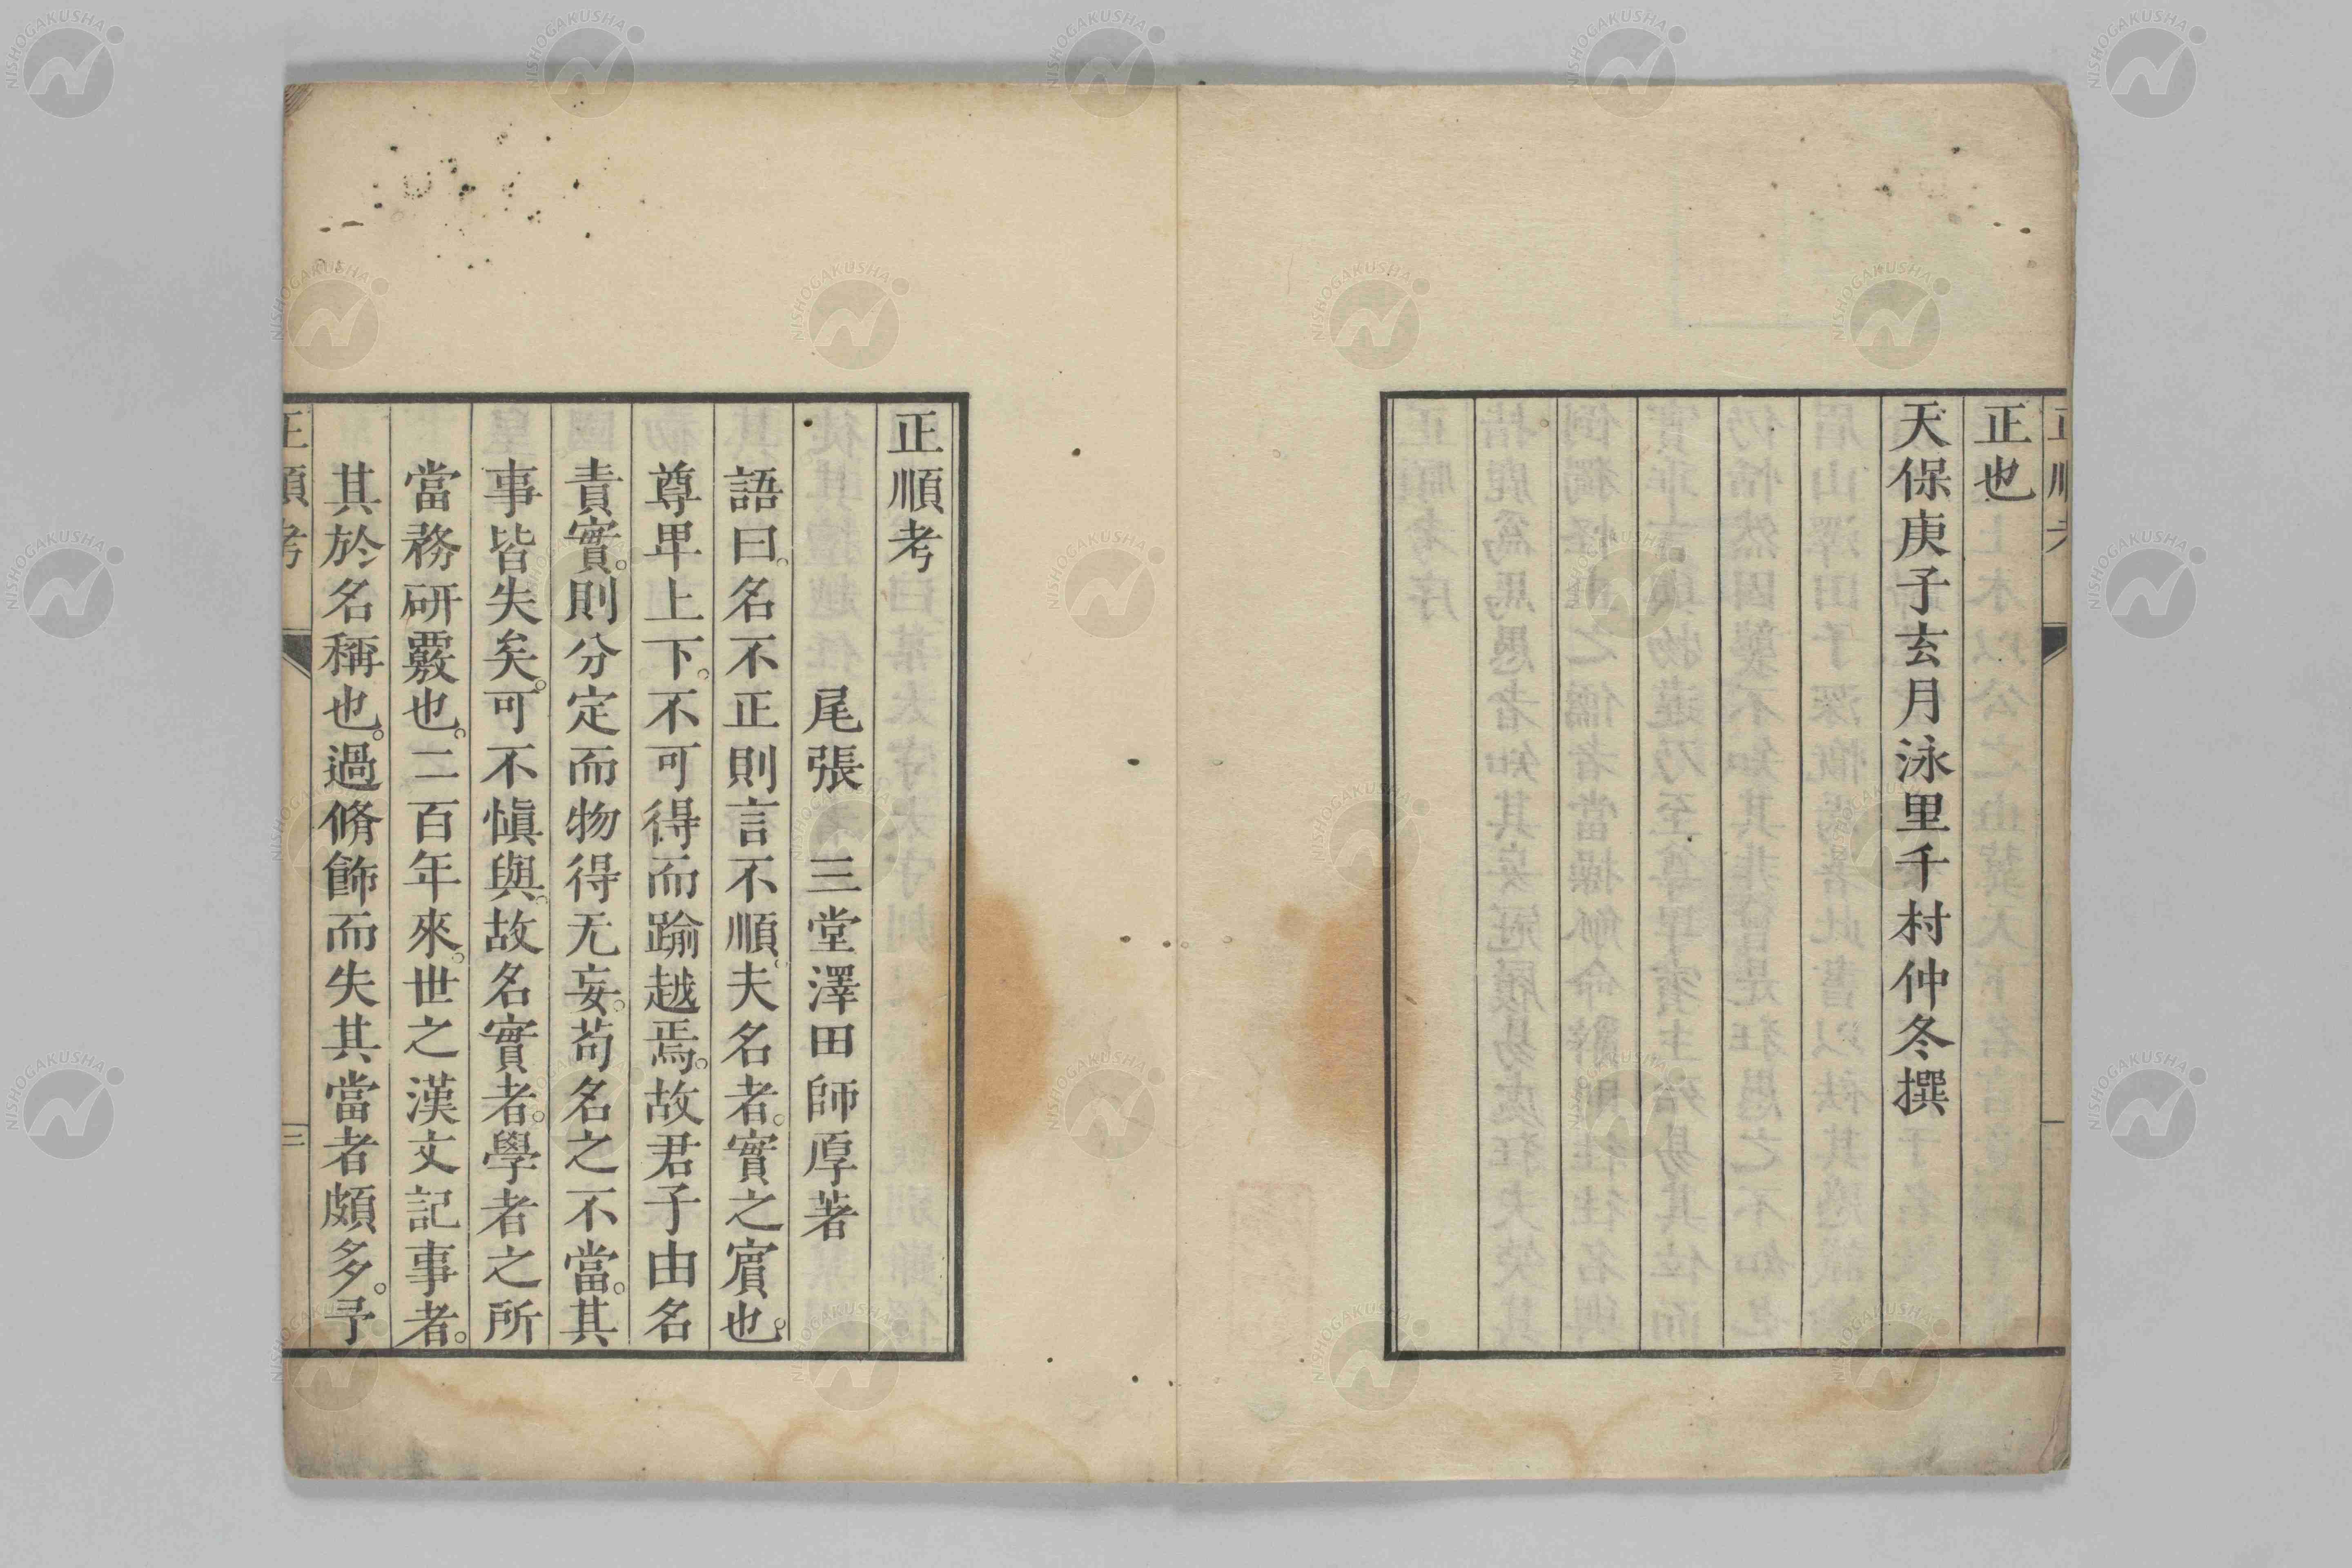 正也
天保庚子玄月泳里千村仲冬撰
正順考
尾張　三堂澤田師厚著
語曰。名不正則言不順。夫名者。實之賓也。
尊卑上下。不可得而踰越焉。故君子由名
責實。則分定而物得无妄。苟名之不當。其
事皆失矣。可不愼與。故名實者。學者之所
當務研覈也。二百年來。世之漢文記事者。
其於名稱也。過脩飾而失其當者頗多。予
正順考
三
NISHOGAKUSHA